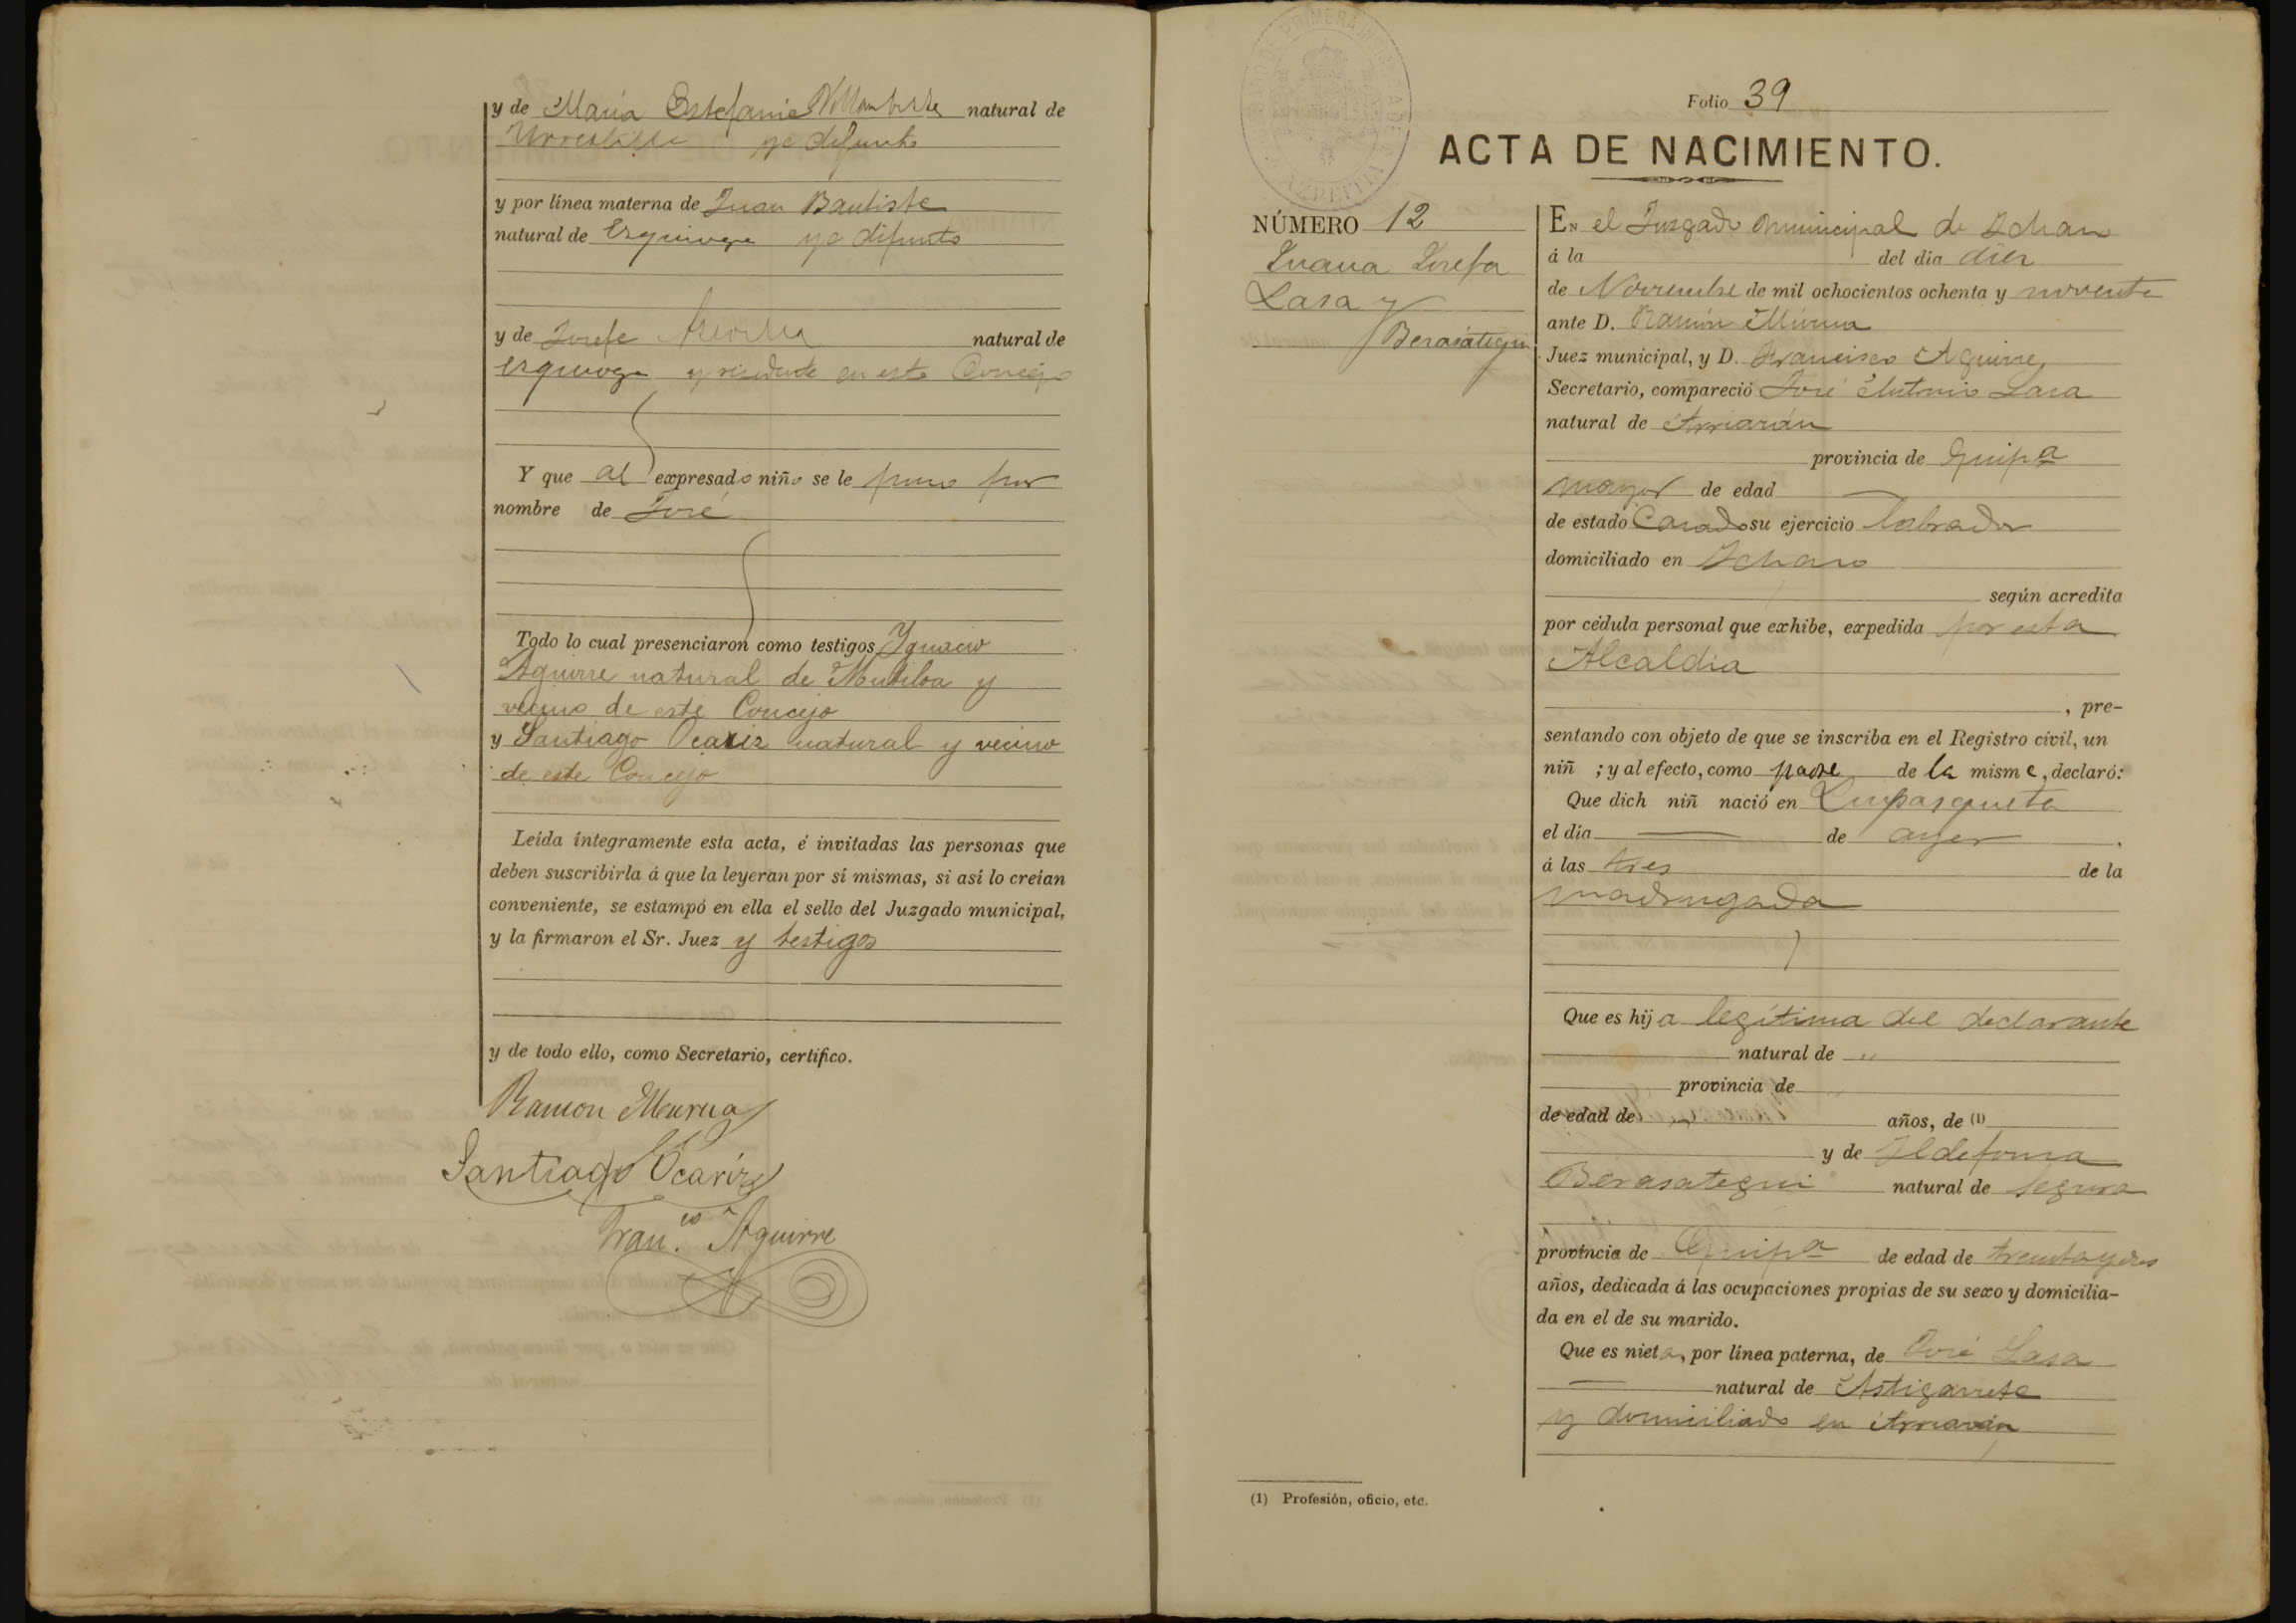 y de María Estefania natural de
Urrestilla ya difunta
y por línea materna de Juan Bautista
natural de Ezquioga ya difunto
y de Josefa natural de
Ezquioga y residente en este Concejo
Y que al expresado niño se le puso por
nombre de José
Todo lo cual presenciaron como testigos Ygnacio
Aguirre natural de Mutiloa y
vecino de este Concejo
y Santiago Ocariz natural y vecino
de este Concejo
Leída íntegramente esta acta, é invitadas las personas que
deben suscribirla á que la leyeran por sí mismas, si así lo creían
conveniente, se estampó en ella el sello del Juzgado municipal,
y la firmaron el Sr. Juez y testigos
y de todo ello, como Secretario, certifico.
Ramon Murua
Santiago Ocariz
Fran.co Aguirre
Folio 39
ACTA DE NACIMIENTO.
NÚMERO 12
Juana Josefa
Lasa y
Berasátegui
En el Juzgado municipal de Ichaso
á la del día diez
de Noviembre de mil ochocientos ochenta y noventa
ante D. Ramón Múrua
Juez municipal, y D. Francisco Aguirre
Secretario, compareció José Antonio Lasa
natural de Arriarán
provincia de Guipª
mayor de edad
de estado Casado su ejercicio labrador
domiciliado en Ichaso
según acredita
por cédula personal que exhibe, expedida por esta
Alcaldia
, pre-
sentando con objeto de que se inscriba en el Registro civil, un
niñ ; y al efecto, como padre de la misma, declaró:
Que dich niñ nació en
el día de ayer .
á las tres de la
madrugada
Que es hija legítima del declarante
natural de "
provincia de "
de edad de años, de (1)
y de Ildefonsa
Berasategui natural de Segura
provincia de Guipª de edad de treinta y dos
años, dedicada á las ocupaciones propias de su sexo y domicilia-
da en el de su marido.
Que es nieta, por línea paterna, de José Lasa
natural de Astigarreta
y domiciliado en Arriarán
(1) Profesión, oficio, etc.